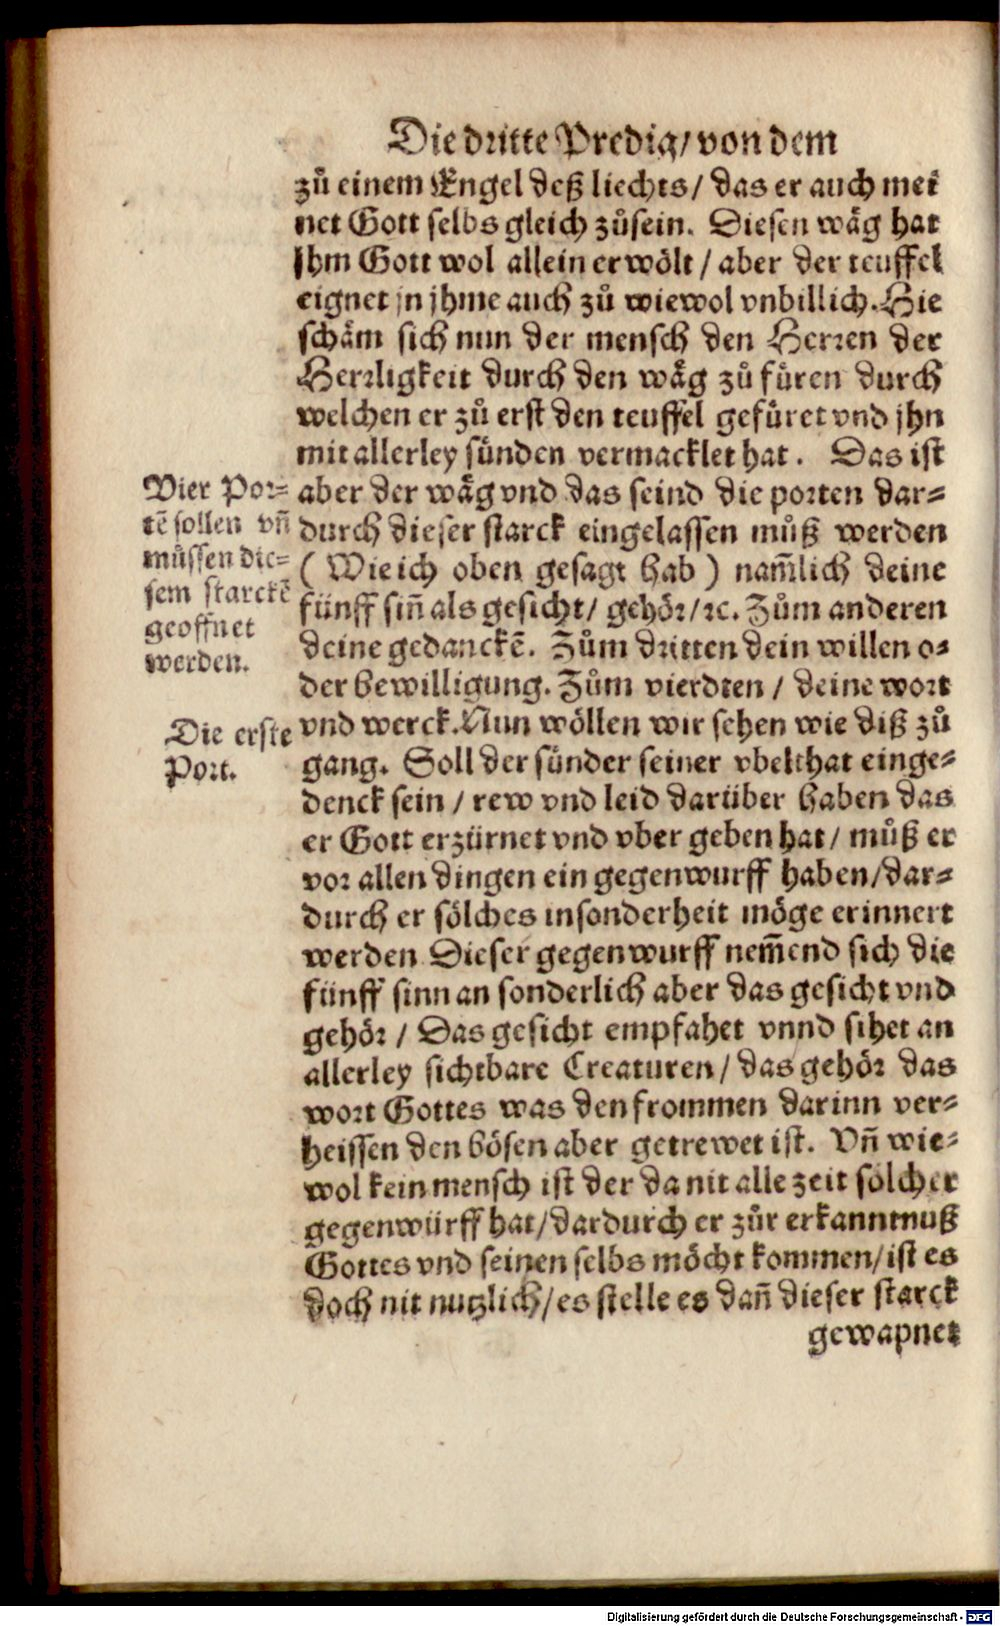 Die dritte Predig/ von dem
zů einem Engel deß liechts/ das er auch mei
net Gott selbs gleich zůsein. Diesen wäg hat
jhm Gott wol allein erwölt/ aber der teuffel
eignet jn jhme auch zů wiewol vnbillich. Hie
schäm sich nun der mensch den Herren der
Herrligkeit durch den wäg zů füren durch
welchen er zů erst den teuffel gefüret vnd jhn
mit allerley sünden vermacklet hat. Das ist
aber der wäg vnd das seind die porten dar-
durch dieser starck eingelassen můß werden
( Wie ich oben gesagt hab ) nam̃lich deine
fünff sin̄ als gesicht/ gehör/ ꝛc. Zům anderen
deine gedanckē. Zům dritten dein willen o-
der bewilligung. Zům vierdten/ deine wort
vnd werck. Nun wöllen wir sehen wie diß zů
gang. Soll der sünder seiner vbelthat einge-
denck sein/ rew vnd leid darüber haben das
er Gott erzürnet vnd vber geben hat/ můß er
vor allen dingen ein gegenwurff haben/ dar-
durch er sölches insonderheit möge erinnert
werden Dieser gegenwurff nem̃end sich die
fünff sinn an sonderlich aber das gesicht vnd
gehör/ Das gesicht empfahet vnnd sihet an
allerley sichtbare Creaturen/ das gehör das
wort Gottes was den frommen darinn ver-
heissen den bösen aber getrewet ist. Vn̄ wie-
wol kein mensch ist der da nit alle zeit sölcher
gegenwürff hat/ dardurch er zůr erkanntnuß
Gottes vnd seinen selbs möcht kommen/ ist es
doch nit nutzlich/ es stelle es dan̄ dieser starck
gewapnet
Vier Por-
tē sollen vn̄
müssen die-
sem starckē
geoffnet
werden.
Die erste
Port.
Digitalisierung gefördert durch die Deutsche Forschungsgemeinschaft - DFG